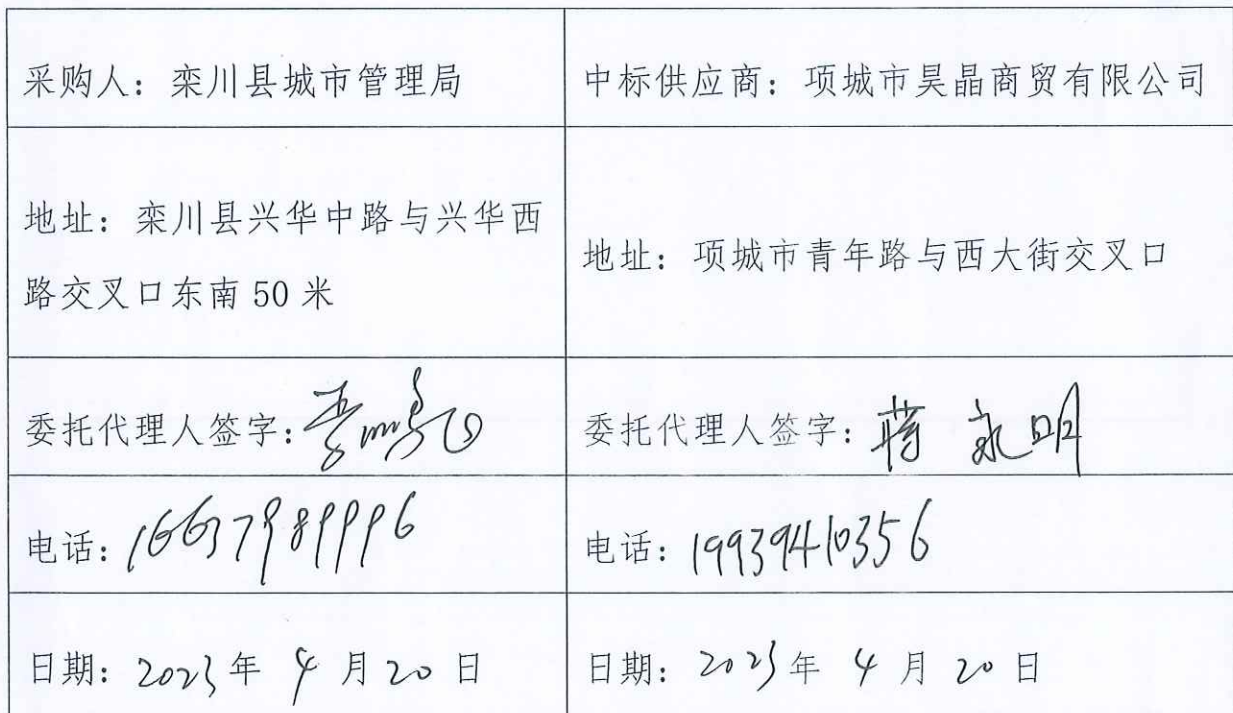 采购人：栾川县城市管理局
中标供应商：项城市昊晶商贸有限公司
地址：栾川县兴华中路与兴华西
路交叉口东南 50 米
地址：项城市青年路与西大街交叉口
委托代理人签字：
委托代理人签字：蒋永明
电话：16637989996
电话：19939410356
日期：2023年 4 月 20 日
日期：2023年 4 月 20 日